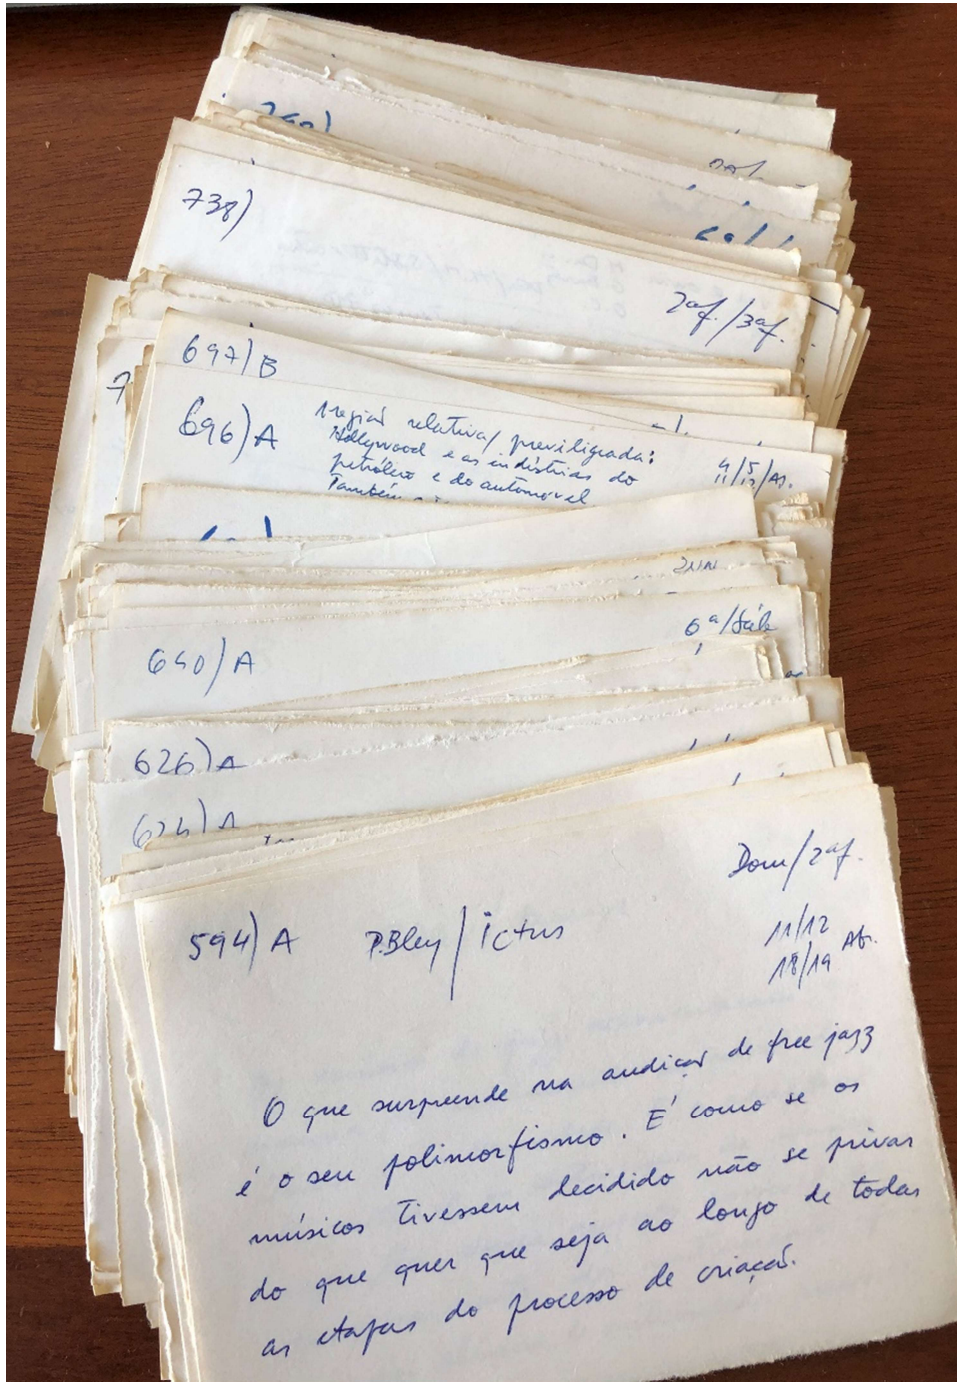 738)
2ªf./3ªf.
697)B
696)A
região relativa/ previligiada:
Hollywood e as indústrias do
petróleo e do automóvel
Também
640)A
6ª/Sáb
626)A
624)A
Dom/2ªf.
594)A P.Bley/ictus
11/12
18/19 Ab.
O que surpreende na audição de free jazz
é o seu polimorfismo. É como se os
músicos tivessem decidido não se privar
do que quer que seja ao longo de todas
as etapas do processo de criação.